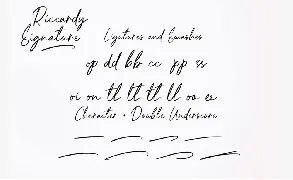 Riccardy
Signature
Ligatures and Swashes
op dd bb cc pp ss
oi on tt tt tt ll oo er
Character + Double Underscore